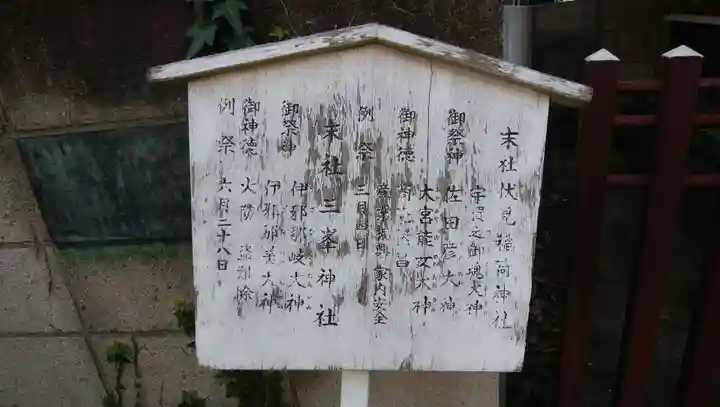 末社伏見稲荷神社
御祭神 宇迦之御魂大神
佐田彦大神
大宮能女大神
御神徳
産業振興 家内安全
例祭 三月 日
末社三峯神社
御祭神 伊邪那岐大神
伊邪那美大神
御神徳 火防 盗難除
例祭 六月二十八日